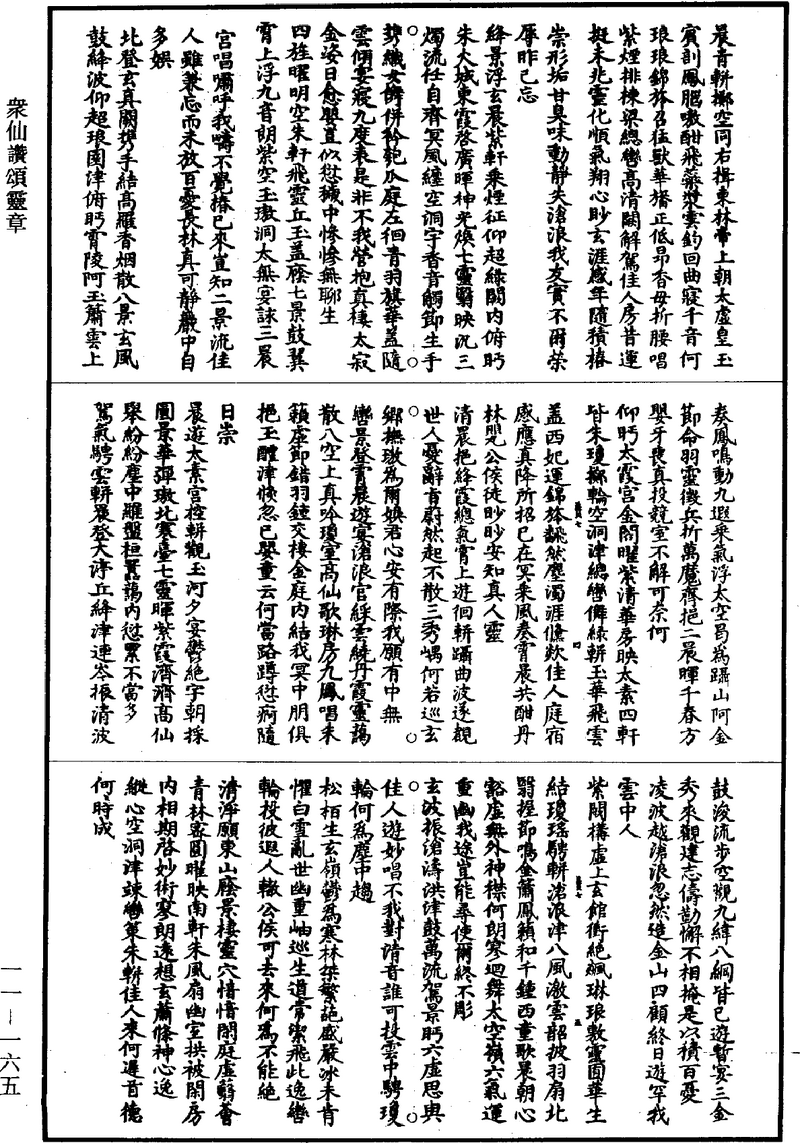 衆仙讚頌靈章
一一—一六五
晨青軿擲空同右揖東林帝上朝太虛皇玉
賓剖鳳腦嗷酣飛蘂漿雲釣回曲寢千音何
琅琅錦旍召猛獸華旛正低昂香母折腰唱
紫煙排棟梁總轡高清闕解駕佳人房昔運
挺未兆靈化順氣翔心眇玄涯感年隨積椿
崇形垢甘臭味動靜失滄浪我友實不爾榮
辱昨已忘
絳景浮玄晨紫軒乘煙征仰超綠闕內俯眄
朱火城東霞啓廣暉神光煥七靈翳映汎三
燭流任自齊冥風纏空洞宇香音觸節生手
攜織女儛併衿匏瓜庭左徊青羽旗華蓋隨
雲傾宴寢九度表是非不我營抱真棲太寂
金姿日愈嬰豈似愆穢中慘慘無聊生
四旌曜明空朱軒飛靈丘玉蓋廕七景鼓翼
霄上浮九音朗紫空玉璈洞太無宴詠三晨
宮唱嘯呼我儔不覺椿已來豈知二景流佳
人雖兼忘而未放百憂長林真可靜巖中自
多娛
北登玄真闕携手結高羅香烟散八景玄風
鼓絳波仰超琅園津俯眄霄陵阿玉蕭雲上
奏鳳鳴動九遐乘氣浮太空曷為躡山阿金
節命羽靈徵兵折萬魔齊挹二晨暉千春方
嬰牙喪真投競室不解可奈何
仰眄太霞宮金閣曜紫清華房映太素四軒
皆朱瓊擲輪空洞津總轡儛綠軿玉華飛雲
蓋西妃運錦旍飜然塵濁涯儵欻佳人庭宿
感應真降所招已在冥乘風奏霄晨共酣丹
林罌公侯徒眇眇安知真人靈
清晨挹絳霞總氣霄上遊徊軿躡曲波遂覩
世人憂辭旨蔚然起不散三秀嵎何若巡玄
鄉撫璈為爾娛君心安有際我願有中無
轡景登霄晨遊宴滄浪宮綵雲繞丹霞靈藹
散八空上真吟瓊室高仙歌琳房九鳳唱朱
籟虛節錯羽鍾交棲金庭內結我冥中朋俱
挹玉醴津倏忽已嬰童云何當路蹲愆痾隨
日崇
晨遊太素宮控軿觀玉河夕宴鬱絕宇朝採
圓景華彈璈北寒臺七靈暉紫霞濟濟高仙
舉紛紛塵中羅盤桓囂藹內愆累不當多
駕氣騁雲軿晨登大渟丘絳津連岑振清波
鼓浚流步空觀九緯八綱皆已遊暫宴三金
秀來觀建志儔勤懈不相掩是以積百憂
凌波越滄浪忽然造金山四顧終日遊罕我
雲中人
紫闕構虛上玄館衝絕飆琳琅敷靈囿華生
結瓊瑤騁軿滄浪津八風激雲韶披羽扇北
翳握節鳴金簫鳳籟和千鍾西童歌晨朝心
豁虛無外神襟何朗寥迴舞太空嶺六氣運
重幽我途豈能尋使爾終不彫
玄波振滄濤洪津鼓萬流駕景眄六虛思與
佳人遊妙唱不我對清音誰可投雲中騁瓊
輪何為塵中趨
松柏生玄嶺鬱為寒林桀繁葩盛嚴冰未肯
懼白雪亂世幽重岫巡生道常潔飛此逸轡
輪投彼遐人轍公侯可去來何為不能絕
清淨願東山廕景棲靈穴愔愔閑庭虛翳薈
青林密圓曜映南軒朱風扇幽室拱袂閑房
內相期啓妙術寥朗遠想玄蕭條神心逸
縱心空洞津竦轡策朱軿佳人來何遲道德
何時成